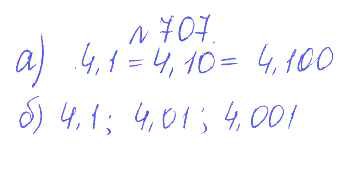 № 707.
а) 4,1 = 4,10 = 4,100
б) 4,1; 4,01; 4,001